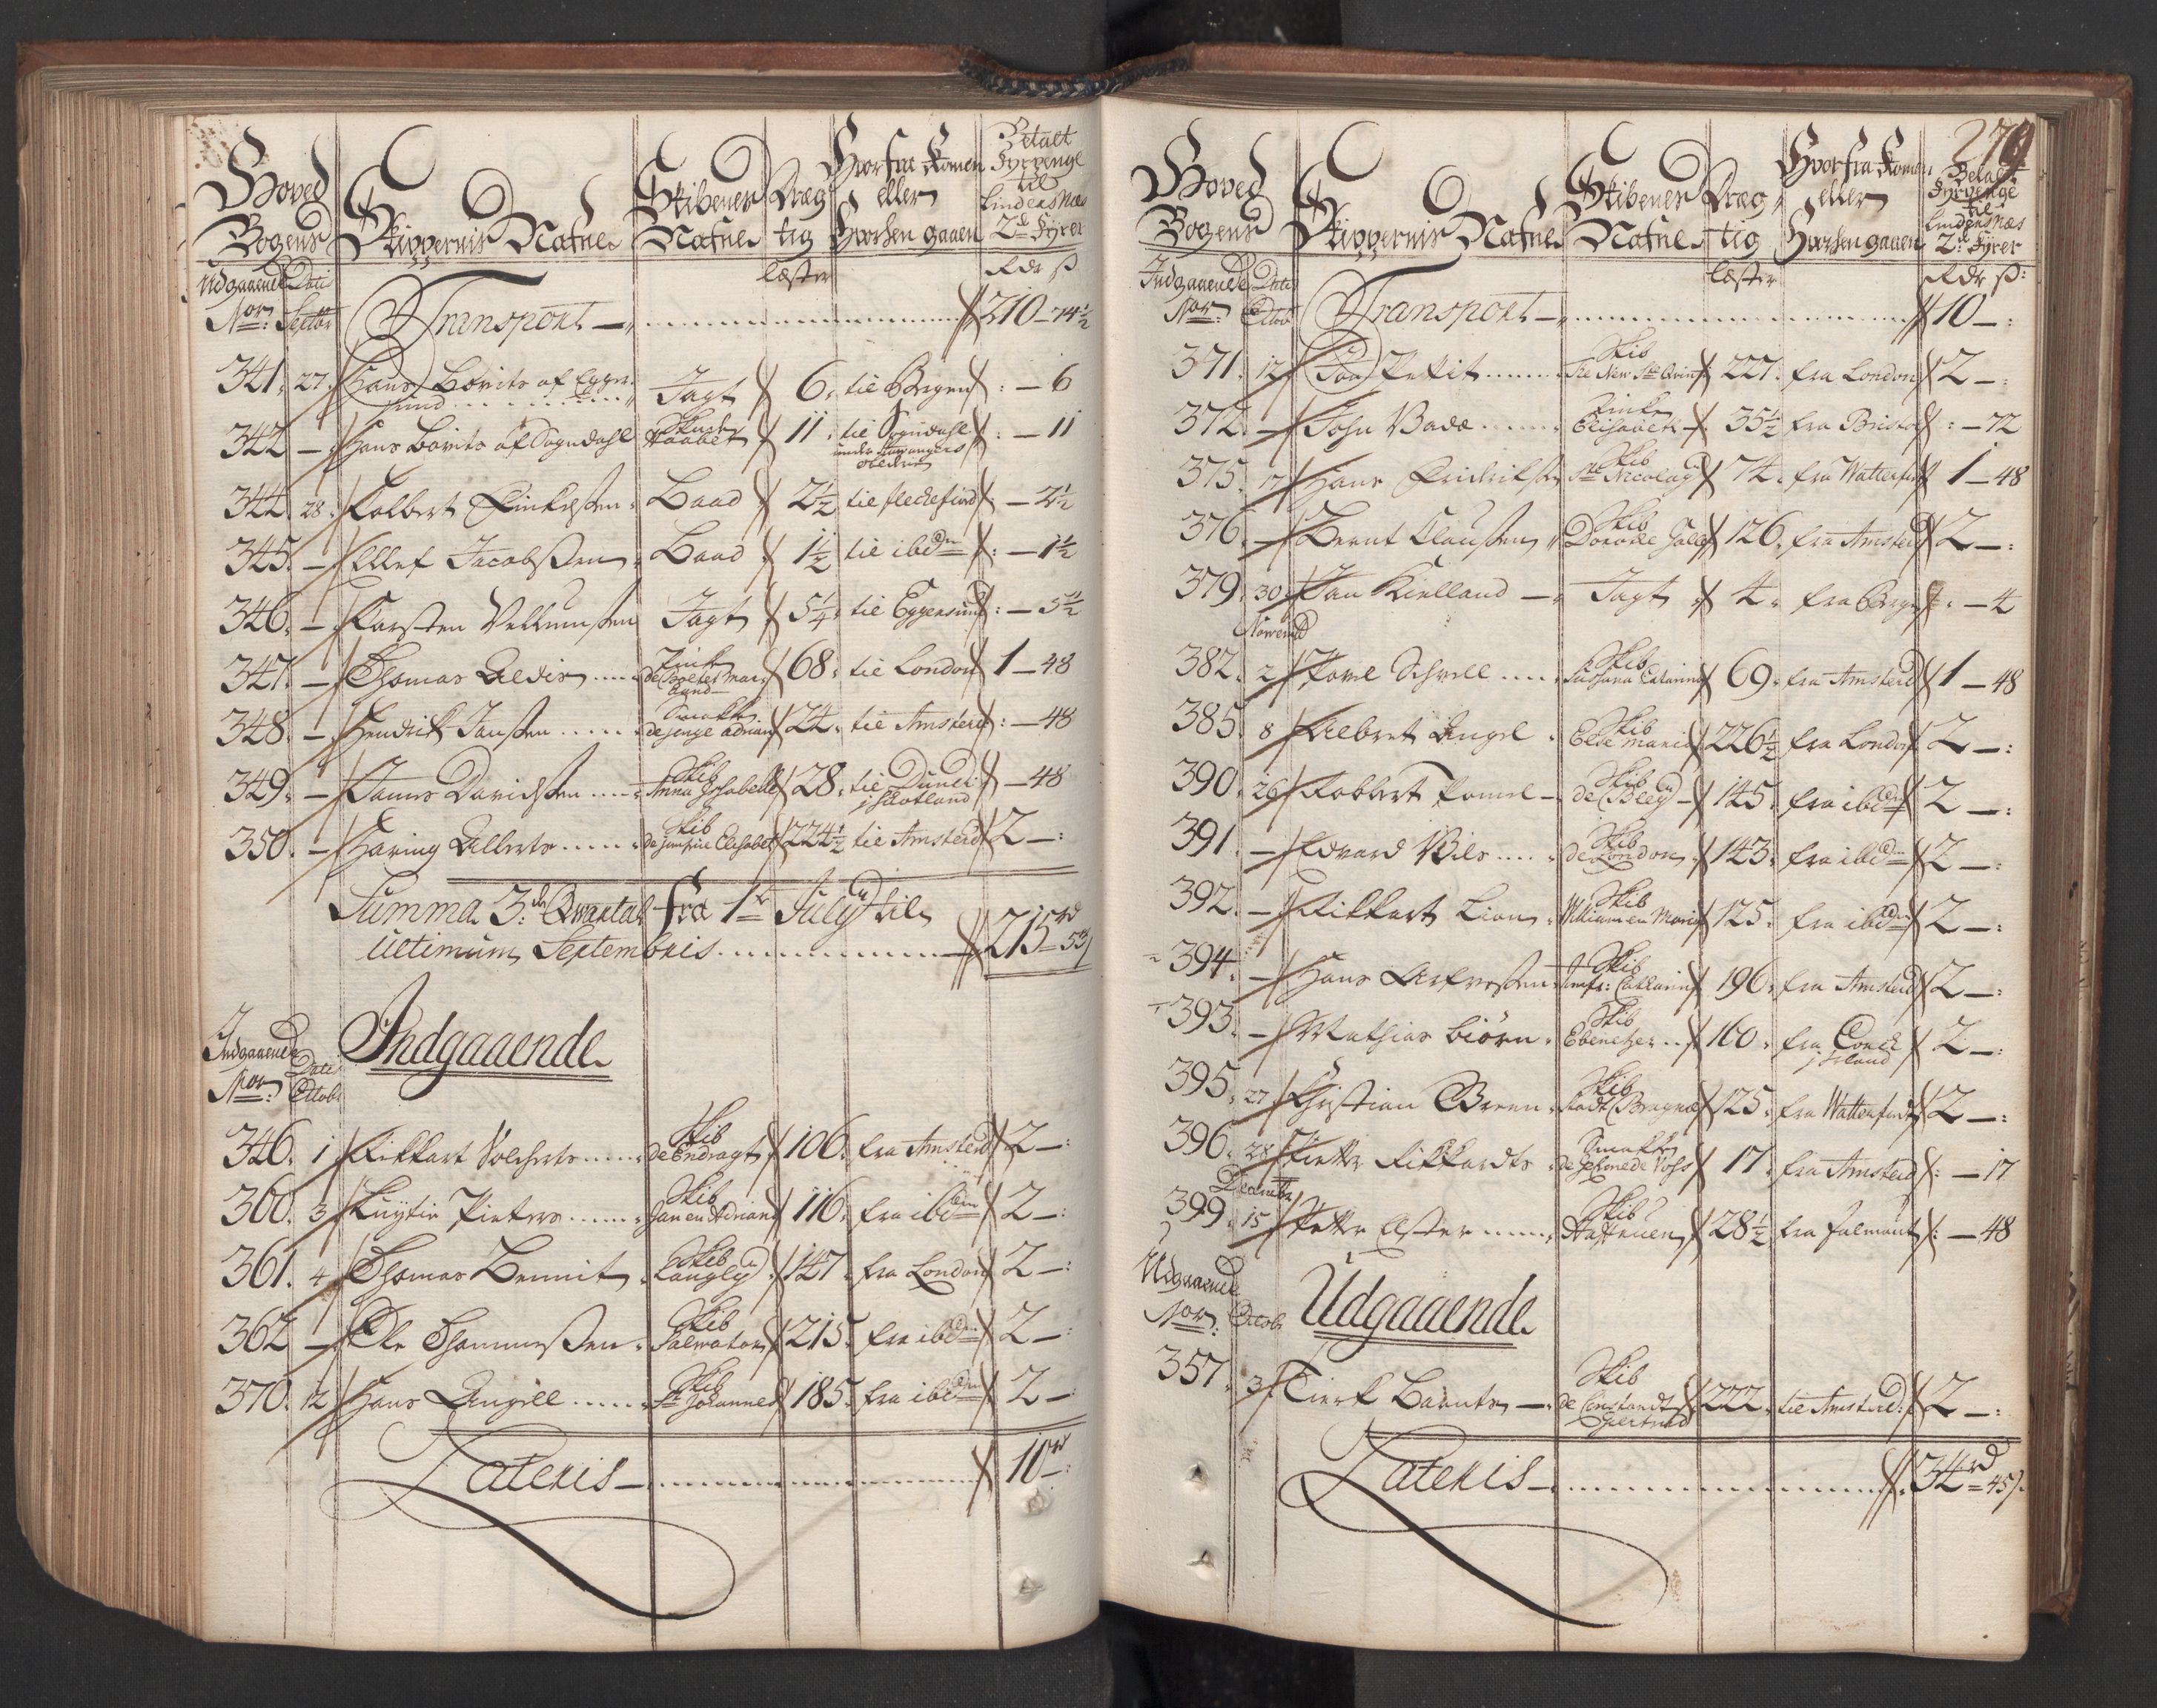 Hoved Bogens
Skippernis Nafne
Skibenes Nafne
Dræg tig
Hvorfra Komen eller Hvorhen gaaen
Betalt Fyrpenge til Lindensnæs 2de Fyrer
Udgaaende Nor: Dato Septbr
læster
Rdr ß
Transport 210-74½
341. 27. Hans Lovits af Egger sund Jagt 6. til Bergen : - 6
342 - Hans Lovits af Sogndahl Skude Haabet 11. til Sogndahl under Stavangers : - 11
344. 28. Colbert Jagt
Baad 2½ til fleckefiord : - 2½
345. - Ellef Jacobßen Baad 1½ til ibdm : - 1½
346. - Karsten Vellumßen Jagt 5¼ til Eggersund : - 5½
347. - Thomas Aldis 68. til London 1 - 48
348. - Hendrik Janßen Smakke de jonge Adrian 24. til Amsterd : - 48
349. - James Davidßen Skib Anna Isabelle 28. til Dundi j Skotland - 48
350. - Haring Alberts Skib de jomfrue Elisabet 224½ til Amsterd 2 - :
Summa 3de Qvartal fra 1te July til
ultimum Septembris 215rd 53ß
Indgaaende Nor: Dato Octobr
Indgaaende
346. 1 Rikkart Volcherts Skib de Endragt 106. fra Amsterd 2 - :
360. 3 Luytie Pieters Skib Jan en Adriana 116. fra ibdm 2 - :
361. 4 Thomas Bennit Skib Langley 147. fra London 2 - :
362 - Ole Thommeßen Skib Salvator 215. fra ibdm 2 - :
370. 12 Hans Angell Skib St Johannes 185. fra ibdm 2 -
Lateris 10rd - :
279
Hoved Bogens
Skippernis Nafne
Skibenes Nafne
Dræg tig
Hvorfra Komen eller Hvorhen gaaen
Betalt Fyrpenge til Lindensnæs 2de Fyrer
Indgaaende Nor: Dato Octob
læster
Rdr ß:
Transport 10 - :
371. 12 Petit Skib 227. fra London 2 - :
372. - John Bade Pinke Elisabet 35½ fra Bristol : - 72
375. 17 Hans Fridrikßen Skib St Nicolay 74. fra Watterford 1 - 48
376. - Bernt Claußen Skib 126. fra Amsterd 2 - :
379. 30 Jan Kielland Jagt 4. fra Bergen : - 4
Novembr
382. 2 Povel Schvell Skib Susanna Catarina 69. fra Amsterd 1 - 48
385. 8 Albret Angel Skib Else Maria 226½ fra London 2 - :
390. 26 Robbert Skib 145. fra ibdm 2 - :
391. - Edvard Wils Skib de London 143. fra ibdm 2 - :
392. - Rikkart Lion Skib William en Maria 125. fra ibdm 2 - :
394. - Hans Skib Jomfr: Catharina 196. fra Amsterd 2 - :
393. - Mathias Biörn Skib Ebenetzer 160. fra Corck j Irland 2 - :
395. 27 Christian Green Skib Stadt Bragnes 125. fra Watterford 2 - :
396. 28 Pietter Rikkardts Smakke 17. fra Amsterd : - 17
Decembr
399. 15 Petter Skib 28½ fra falmout : - 48
Udgaaende Nor: Octobr
Udgaaende
357. 3 Tierk Barents Skib de Constandt Giertrud 222. til Amsterd: 2 - :
Lateris 34rd 45ß.